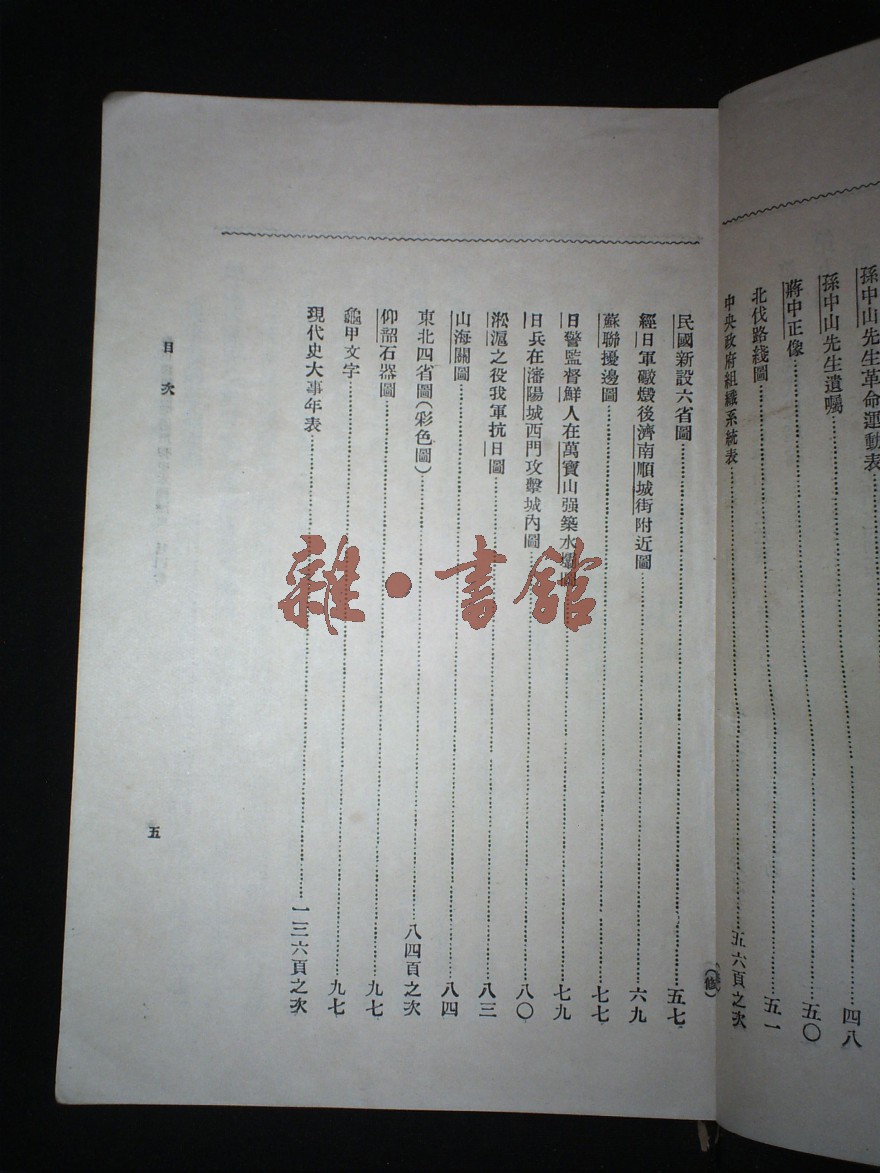 孫中山先生革命運動表……四八
孫中山先生遺囑
蔣中正像……五〇
北伐路綫圖……五一
中央政府組織系統表……五六頁之次
(修)
民國新設六省圖……五七
經日軍礮燬後濟南順城街附近圖……六九
蘇聯擾邊圖……七七
日警監督鮮人在萬寶山强築水壩圖……七九
日兵在瀋陽城西門攻擊城內圖……八〇
淞滬之役我軍抗日圖……八三
山海關圖……八四
東北四省圖(彩色圖)……八四頁之次
仰韶石器圖……九七
龜甲文字……九七
現代史大事年表……一三六頁之次
目次
五
雜·書館